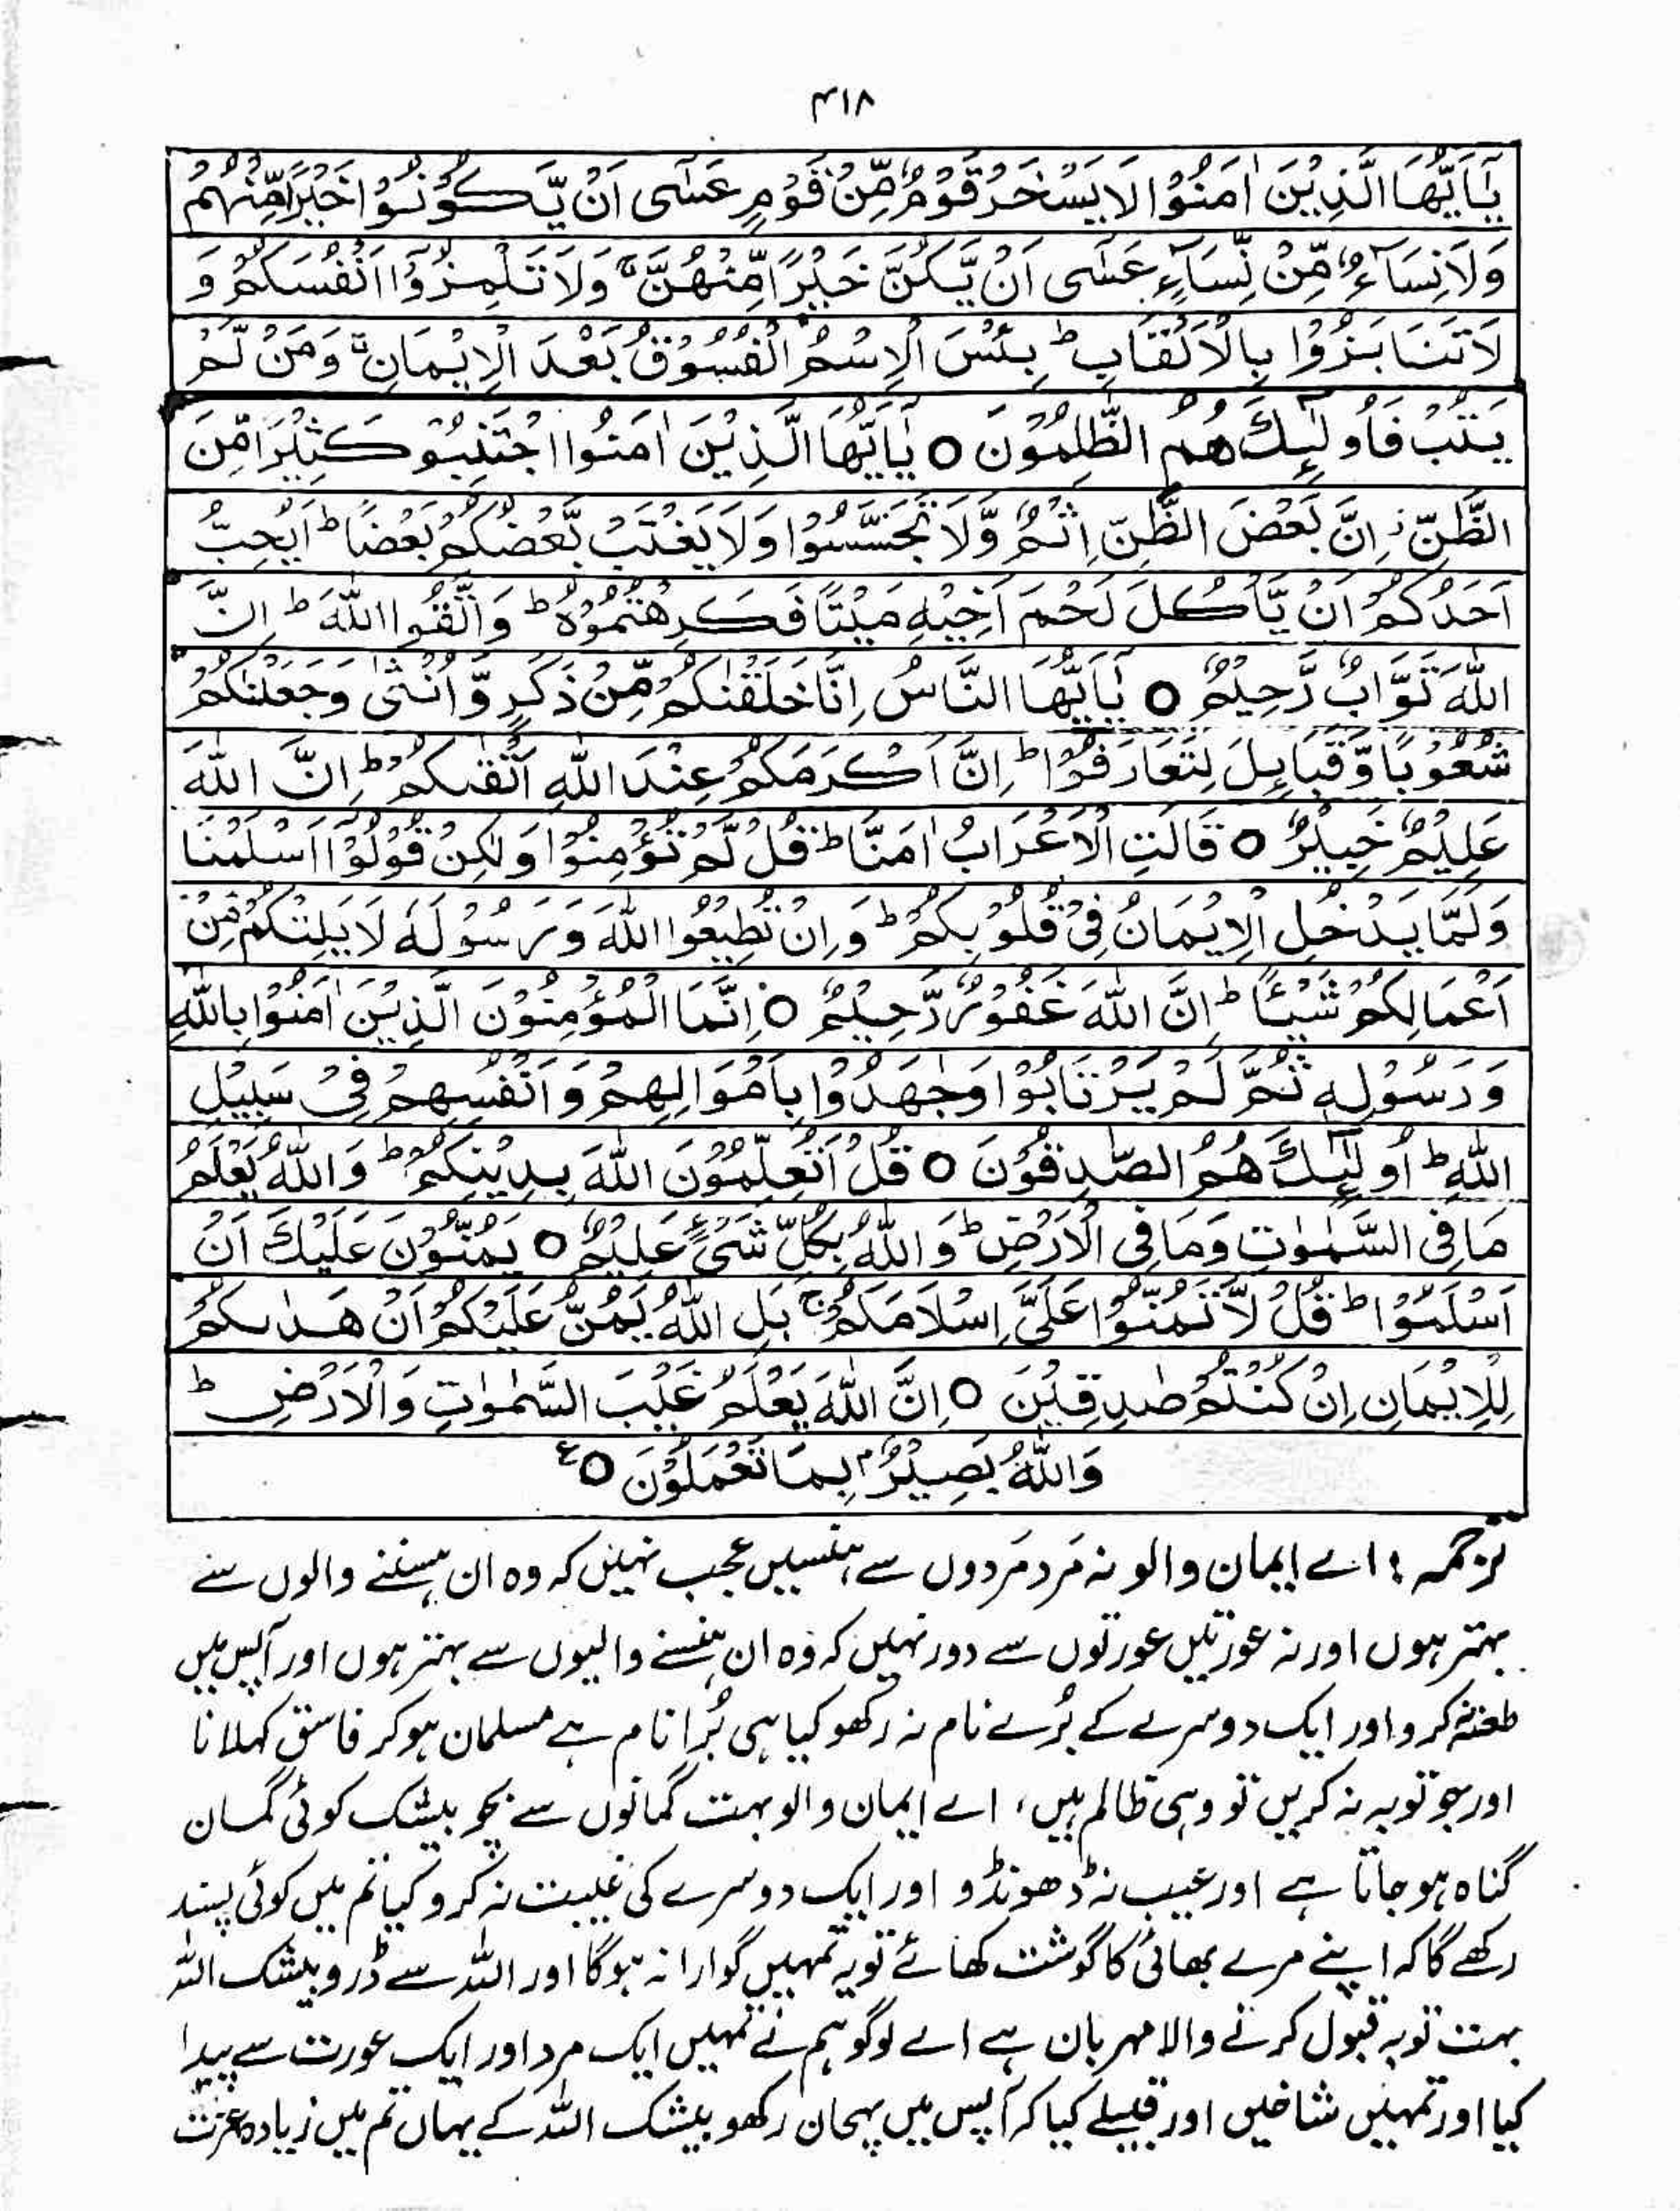 ۴۱۸
يٰۤاَيُّهَا الَّذِيْنَ اٰمَنُوْا لَا يَسْخَرْ قَوْمٌ مِّنْ قَوْمٍ عَسٰۤى اَنْ يَّكُوْنُوْا خَيْرًا مِّنْهُمْ
وَلَا نِسَآءٌ مِّنْ نِّسَآءٍ عَسٰۤى اَنْ يَّكُنَّ خَيْرًا مِّنْهُنَّ ۚ وَلَا تَلْمِزُوْۤا اَنْفُسَكُمْ وَ
لَا تَنَابَزُوْا بِالْاَلْقَابِ ؕ بِئْسَ الْاِسْمُ الْفُسُوْقُ بَعْدَ الْاِيْمَانِ ۚ وَمَنْ لَّمْ
يَتُبْ فَاُولٰٓئِكَ هُمُ الظّٰلِمُوْنَ ○ يٰۤاَيُّهَا الَّذِيْنَ اٰمَنُوا اجْتَنِبُوْ كَثِيْرًا مِّنَ
الظَّنِّ ؗ اِنَّ بَعْضَ الظَّنِّ اِثْمٌ وَّلَا تَجَسَّسُوْا وَلَا يَغْتَبْ بَّعْضُكُمْ بَعْضًا ؕ اَيُحِبُّ
اَحَدُكُمْ اَنْ يَّاْكُلَ لَحْمَ اَخِيْهِ مَيْتًا فَكَرِهْتُمُوْهُ ؕ وَاتَّقُوا اللّٰهَ ؕ اِنَّ
اللّٰهَ تَوَّابٌ رَّحِيْمٌ ○ يٰۤاَيُّهَا النَّاسُ اِنَّا خَلَقْنٰكُمْ مِّنْ ذَكَرٍ وَّاُنْثٰى وَجَعَلْنٰكُمْ
شُعُوْبًا وَّقَبَآئِلَ لِتَعَارَفُوْا ؕ اِنَّ اَكْرَمَكُمْ عِنْدَ اللّٰهِ اَتْقٰىكُمْ ؕ اِنَّ اللّٰهَ
عَلِيْمٌ خَبِيْرٌ ○ قَالَتِ الْاَعْرَابُ اٰمَنَّا ؕ قُلْ لَّمْ تُؤْمِنُوْا وَلٰكِنْ قُوْلُوْۤا اَسْلَمْنَا
وَلَمَّا يَدْخُلِ الْاِيْمَانُ فِيْ قُلُوْبِكُمْ ؕ وَاِنْ تُطِيْعُوا اللّٰهَ وَرَسُوْلَهٗ لَا يَلِتْكُمْ مِّنْ
اَعْمَالِكُمْ شَيْئًا ؕ اِنَّ اللّٰهَ غَفُوْرٌ رَّحِيْمٌ ○ اِنَّمَا الْمُؤْمِنُوْنَ الَّذِيْنَ اٰمَنُوْا بِاللّٰهِ
وَرَسُوْلِهٖ ثُمَّ لَمْ يَرْتَابُوْا وَجٰهَدُوْا بِاَمْوَالِهِمْ وَاَنْفُسِهِمْ فِيْ سَبِيْلِ
اللّٰهِ ؕ اُولٰٓئِكَ هُمُ الصّٰدِقُوْنَ ○ قُلْ اَتُعَلِّمُوْنَ اللّٰهَ بِدِيْنِكُمْ ؕ وَاللّٰهُ يَعْلَمُ
مَا فِى السَّمٰوٰتِ وَمَا فِى الْاَرْضِ ؕ وَاللّٰهُ بِكُلِّ شَيْءٍ عَلِيْمٌ ○ يَمُنُّوْنَ عَلَيْكَ اَنْ
اَسْلَمُوْا ؕ قُلْ لَّا تَمُنُّوْا عَلَيَّ اِسْلَامَكُمْ ۚ بَلِ اللّٰهُ يَمُنُّ عَلَيْكُمْ اَنْ هَدٰىكُمْ
لِلْاِيْمَانِ اِنْ كُنْتُمْ صٰدِقِيْنَ ○ اِنَّ اللّٰهَ يَعْلَمُ غَيْبَ السَّمٰوٰتِ وَالْاَرْضِ ؕ
وَاللّٰهُ بَصِيْرٌۢ بِمَا تَعْمَلُوْنَ ○ ع
ترجمہ : اے ایمان والو نہ مَرد مَردوں سے ہنسیں عجب نہیں کہ وہ ان ہنسنے والوں سے
بہتر ہوں اور نہ عورتیں عورتوں سے دور نہیں کہ وہ ان ہنسنے والیوں سے بہتر ہوں اور آپس میں
طعنہ نہ کرو اور ایک دوسرے کے بُرے نام نہ رکھو کیا ہی بُرا نام ہے مسلمان ہو کر فاسق کہلانا
اور جو توبہ نہ کریں تو وہی ظالم ہیں، اے ایمان والو بہت گمانوں سے بچو بیشک کوئی گمان
گناہ ہو جاتا ہے اور عیب نہ ڈھونڈو اور ایک دوسرے کی غیبت نہ کرو کیا تم میں کوئی پسند
رکھے گا کہ اپنے مرے بھائی کا گوشت کھائے تو یہ تمہیں گوارا نہ ہوگا اور اللہ سے ڈرو بیشک اللہ
بہت توبہ قبول کرنے والا مہربان ہے اے لوگو ہم نے تمہیں ایک مرد اور ایک عورت سے پیدا
کیا اور تمہیں شاخیں اور قبیلے کیا کہ آپس میں پہچان رکھو بیشک اللہ کے یہاں تم میں زیادہ عزت